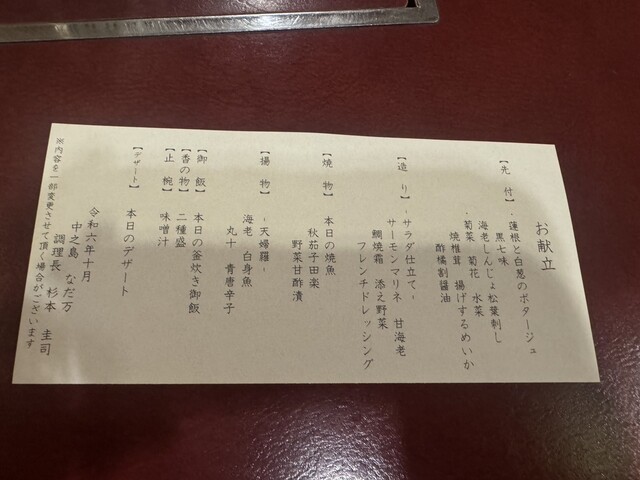 お献立
【先 付】・蓮根と白葱のポタージュ
黒七味
海老しんじょ松葉刺し
・菊菜 菊花 水菜
焼椎茸 揚げするめいか
酢橘割醤油
【造 り】-サラダ仕立て-
サーモンマリネ 甘海老
鯛焼霜 添え野菜
フレンチドレッシング
【焼 物】本日の焼魚
秋茄子田楽
野菜甘酢漬
【揚 物】-天婦羅-
海老 白身魚
丸十 青唐辛子
【御 飯】本日の釜炊き御飯
【香の物】二種盛
【止 椀】味噌汁
【デザート】本日のデザート
令和六年十月
中之島 なだ万
調理長 杉本 圭司
※内容を一部変更させて頂く場合がございます